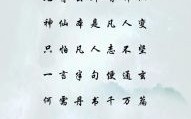 神仙本是凡人变
只怕凡人志不坚
一言半句便通玄
何需丹书千万篇